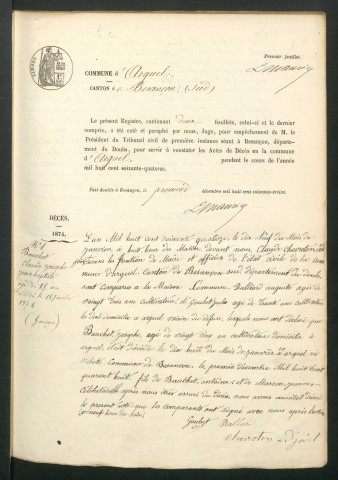 Premier feuillet.
COMMUNE d'Arguel
CANTON de Besançon (Sud)
Le présent Registre, contenant deux feuillets, celui-ci et le dernier
compris, a été coté et paraphé par nous, Juge, pour empêchement de M. le
Président du Tribunal civil de première instance séant à Besançon, département
du Doubs, pour servir à constater les Actes de Décès en la commune
d'Arguel pendant le cours de l'année
mil huit cent soixante-quatorze.
Fait double à Besançon, le premier décembre mil huit cent soixante-treize.
DÉCÈS.
1874.
N° 1
Bauchet
Claude Joseph
Jean baptiste
agé de 25 ans
décédé le 18 janvier
1874
(Garçon)
L'an Mil huit cent soixante quatorze le dix Neuf du Mois de
janvier à huit heures du Matin devant nous Claude
la fonction de Maire et officier de l'état civil de la com
mune d'arguel Canton de Besançon sud département du doubs
sont comparus a la Maison Commune Baillard auguste agé de
vingt trois ans cultivateur et Goulut jules agé de trente ans cultivateur
le dont domicilié a arguel voisins du défunt, lesquels nous ont déclaré que
Bauchet Joseph, agé de vingt cinq ans cultivateur domicilié a
arguel Est décédé le dix huit du Mois de janvier à arguel né
Commune de Besançon le premier Décembre Mil huit cent
quarante huit fils de Bauchet, antoine et de Masson
Célibataire après nous être assuré du Décès, nous avons
le présent acte que les comparants ont signé avec nous après lecture